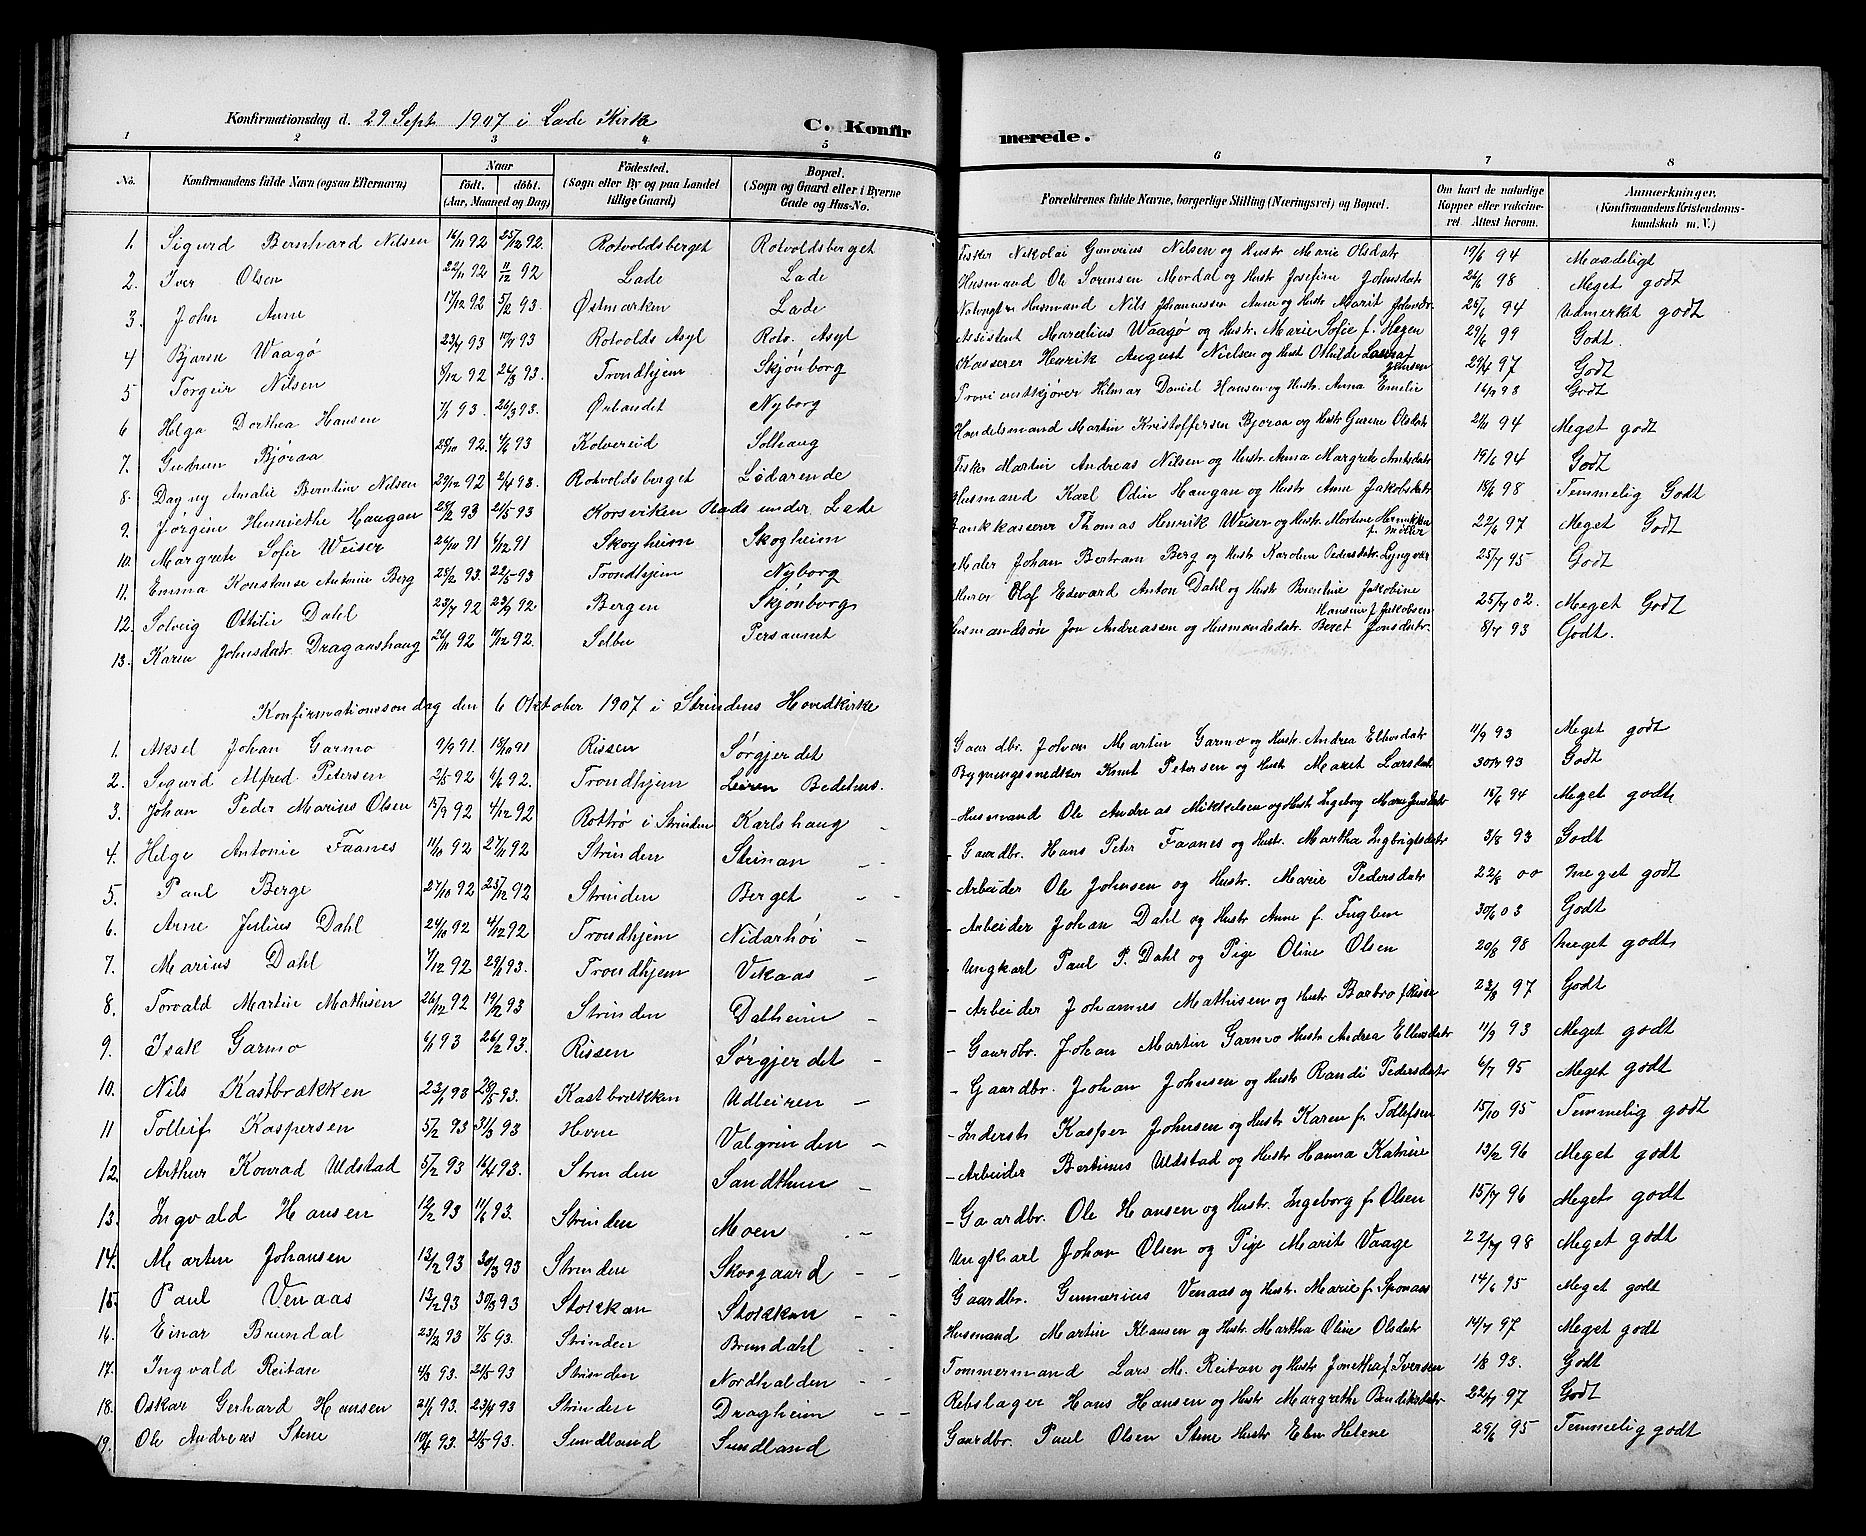 Konfirmationsdag d. 29 Sept 1907 i Lade Kirke C. Konfirmerede.
1 2 3 4 5 6 7 8
No. Konfirmandens fulde Navn (ogsaa Efternavn) Naar födt. döbt. (Aar, Maaned og Dag) Födested. (Sogn eller By og paa Landet tillige Gaard) Bopæl. (Sogn og Gaard eller i Byerne Gade og Hus-No. Forældrenes fulde Navne, borgerlige Stilling (Næringsvei) og Bopæl. Om havt de naturlige Kopper eller vakcineret Attest herom. Anmærkninger. (Konfirmandens Kristendomskundskab m. V.)
1. Sigurd Bernhard Nilsen 16/11 92 25/12 92. Rotvoldsberget Rotvoldsberget Fisker Nikolai Gunerius Nilsen og Hustr Marie Olsdatr 19/6 94 Maadeligt
2. Iver Olsen 22/11 92 11/12 92 Lade Lade Husmand Ole Sorensen Mordal og Hustr Josefine Johnsdatr 26/6 98 Meget godt
3. John Anne 17/12 92 5/2 93. Østmarken Lade Husmand Nils Johannessen Anne og Hustr Marit Johnsdr. 25/6 94 Udmerket godt
4 Bjarne Waagø 23/4 93 Rotvolds Asyl Rotv. Asyl Assistent Marcelius Waagø og Hustr. Marie Sofie f. Hagen 29/6 99 Godt.
5 Torgeir Nilsen 92 26/3 93. Trondhjem Skjønborg Kasserer Henrik August Nielsen og Hust Othilde 29/4 97 Godt
6 Helga Dorthea Hansen 7/1 93. 26/3 93. Ørlandet Nyborg Hilmar Daniel Hansen og Hustr. Anna Emelie 98 Godt
7. Gudrun Bjøraa 25/10 92. 93 Kolvereid Solhaug Handelsmand Martin Kristoffersen Bjoraa og Hustr Gurine Olsdatr 21/11 94 Meget godt
8. Dagny Amalie Berntine Nilsen 29/12 92 2/4 93. Rotvoldsberget Lødarende Fisker Martin Andreas Nilsen og Hustr. Anna Margrete Arntsdatr 19/6 94 Godt
9. Jørgine Henriette Haugan 28/2 93 21/5 93 Korsviken Plads under Lade Husmand Karl Odin Haugan og Hustr Anne Jakobsdatr 18/6 98 Temmelig Godt
10. Margrete Sofie Weiser 26/10 91 6/12 91 Skogheim Skogheim Bankkasserer Thomas Henrik Weiser og Hustr. Mortine Henrikke f. Möller 22/6 97 Meget Godt
11. Emma Konstanse Antonie Berg 25/2 93. 22/5 93 Trondhjem Nyborg Maler Johan Bertram Berg og Hustr Karoline Pedersdatr. Lyngvær 25/7 95 Godt
12. Solveig Ottilie Dahl 23/7 92 92 Bergen Skjønborg Murer Olaf Edvard Anton Dahl og Hustr Berntine Jakobine Hansine f. Jakobsen 25/7 02. Meget Godt
13. Karen Johnsdatr. Dragaashaug 26/11 92 92. Selbu Persaunet Husmandsøn Jon Andreassen og Husmandsdatr. Beret Jonsdatr. 8/7 93 Godt.
Konfirmationssondag den 6 Oktober 1907 i Strindens Hovedkirke
1. Aksel Johan Garmo 9/9 91. 18/10 91 Rissen Sørgjerdet Gaardbr. Johan Martin Garmo og Hustr. Andrea Ellensdatr 11/9 93 Meget godt
2. Sigurd Alfred Petersen 2/5 92 6/6 92. Trondhjem Leiren Bedehus. Bygningssnedker Knut Petersen og Hustr Maret Larsdatr 93 Godt
3. Johan Peder Marius Olsen 15/9 92 4/12 92 Rottrø i Strinden Karlshaug - Husmand Ole Andreas Mikkelsen og Hustr Ingeborg Marie Jensdatr 15/6 94 Meget godt
4. Helge Antonie Faanes 11/10 92 27/11 92 Strinden Steinan - Gaardbr. Hans Peter Faanes og Hustr. Martha Ingbrigtsdatr 3/8 93 Godt
5. Paul Berge 27/10 92 25/12 92 Strinden Berget - Arbeider Ole Johnsen og Hustr. Marie Pedersdatr 22/8 00 Meget godt
6. Arne Julius Dahl 24/10 92 4/12 92 Trondhjem Nidarhøi - Arbeider Johan Dahl og Hustr Anne f. Fuglem 30/6 03 Godt
7. Marius Dahl 7/12 92 29/1 93. Trondhjem Vikaas - Ungkarl Paul P. Dahl og Pige Oline Olsen 20/8 98 Meget godt
8. Torvald Martin Mathisen 26/12 92 19/2 93 Strinden Dalheim - Arbeider Johannes Mathisen og Hustr Barbro f. Risse 97 Godt
9. Isak Garmo 6/1 93 26/2 93. Rissen Sørgjerdet - Gaardbr. Johan Martin Garmo Hustr Andrea Ellensdatr 11/9 93 Meget godt
10. Nils Kastbrækken 23/1 93 28/5 93. Kastbrækkan Udleiren - Gaardbr. Johan Johnsen og Hustr Randi Pedersdatr 6/7 95 Meget godt
11 Tolleif Kaspersen 5/2 93 31/3 93 Hevne Valgrinden - Inderst Kasper Johnsen og Hustr Karen f. Tollefsen 15/10 95 Temmelig godt
12. Arthur Konrad Udstad 5/2 93 16/4 93. Strinden Sandthun - Arbeider Bertinus Udstad og Hustr Hanna Katrine 13/2 96 Meget godt
13. Ingvald Hansen 12/2 93 11/6 93. Strinden Moen - Gaardbr. Ole Hansen og Hustr. Ingeborg f. Olsen 15/7 96 Meget godt
14. Martin Johansen 13/2 93 30/3 93 Strinden Skovgaard - Ungkarl Johan Olsen og Pige Marit Vaage 22/7 98 Meget godt
15. Paul Venaas 13/2 93 93 Stokkan Stokkan - Gaardbr. Gunnerius Venaas og Hustr. Marie f. Sponaas 14/6 95 Meget godt
16. Einar Brundal 23/2 93 7/5 93. Strinden Brundahl - Husmand Martin Klausen og Hustr. Martha Oline Olsdatr 14/7 97 Meget godt
17. Ingvald Reitan 4/3 93. 21/5 93 Strinden Nordhalden - Tommermand Lars M. Reitan og Hustr Jonetha f Iversen 1/8 93. Godt
18. Oskar Gerhard Hansen 21/1 93. 23/4 93 Strinden Dragheim - Rebslager Hans Hansen og Hustr Margrethe Bendiksdatr 22/7 97 Godt
19. Ole Andreas Stene 10/4 93. 21/5 93. Sundland Sundland Gaardbr. Paul Olsen Stene Hustr Helene 29/6 95 Temmelig godt